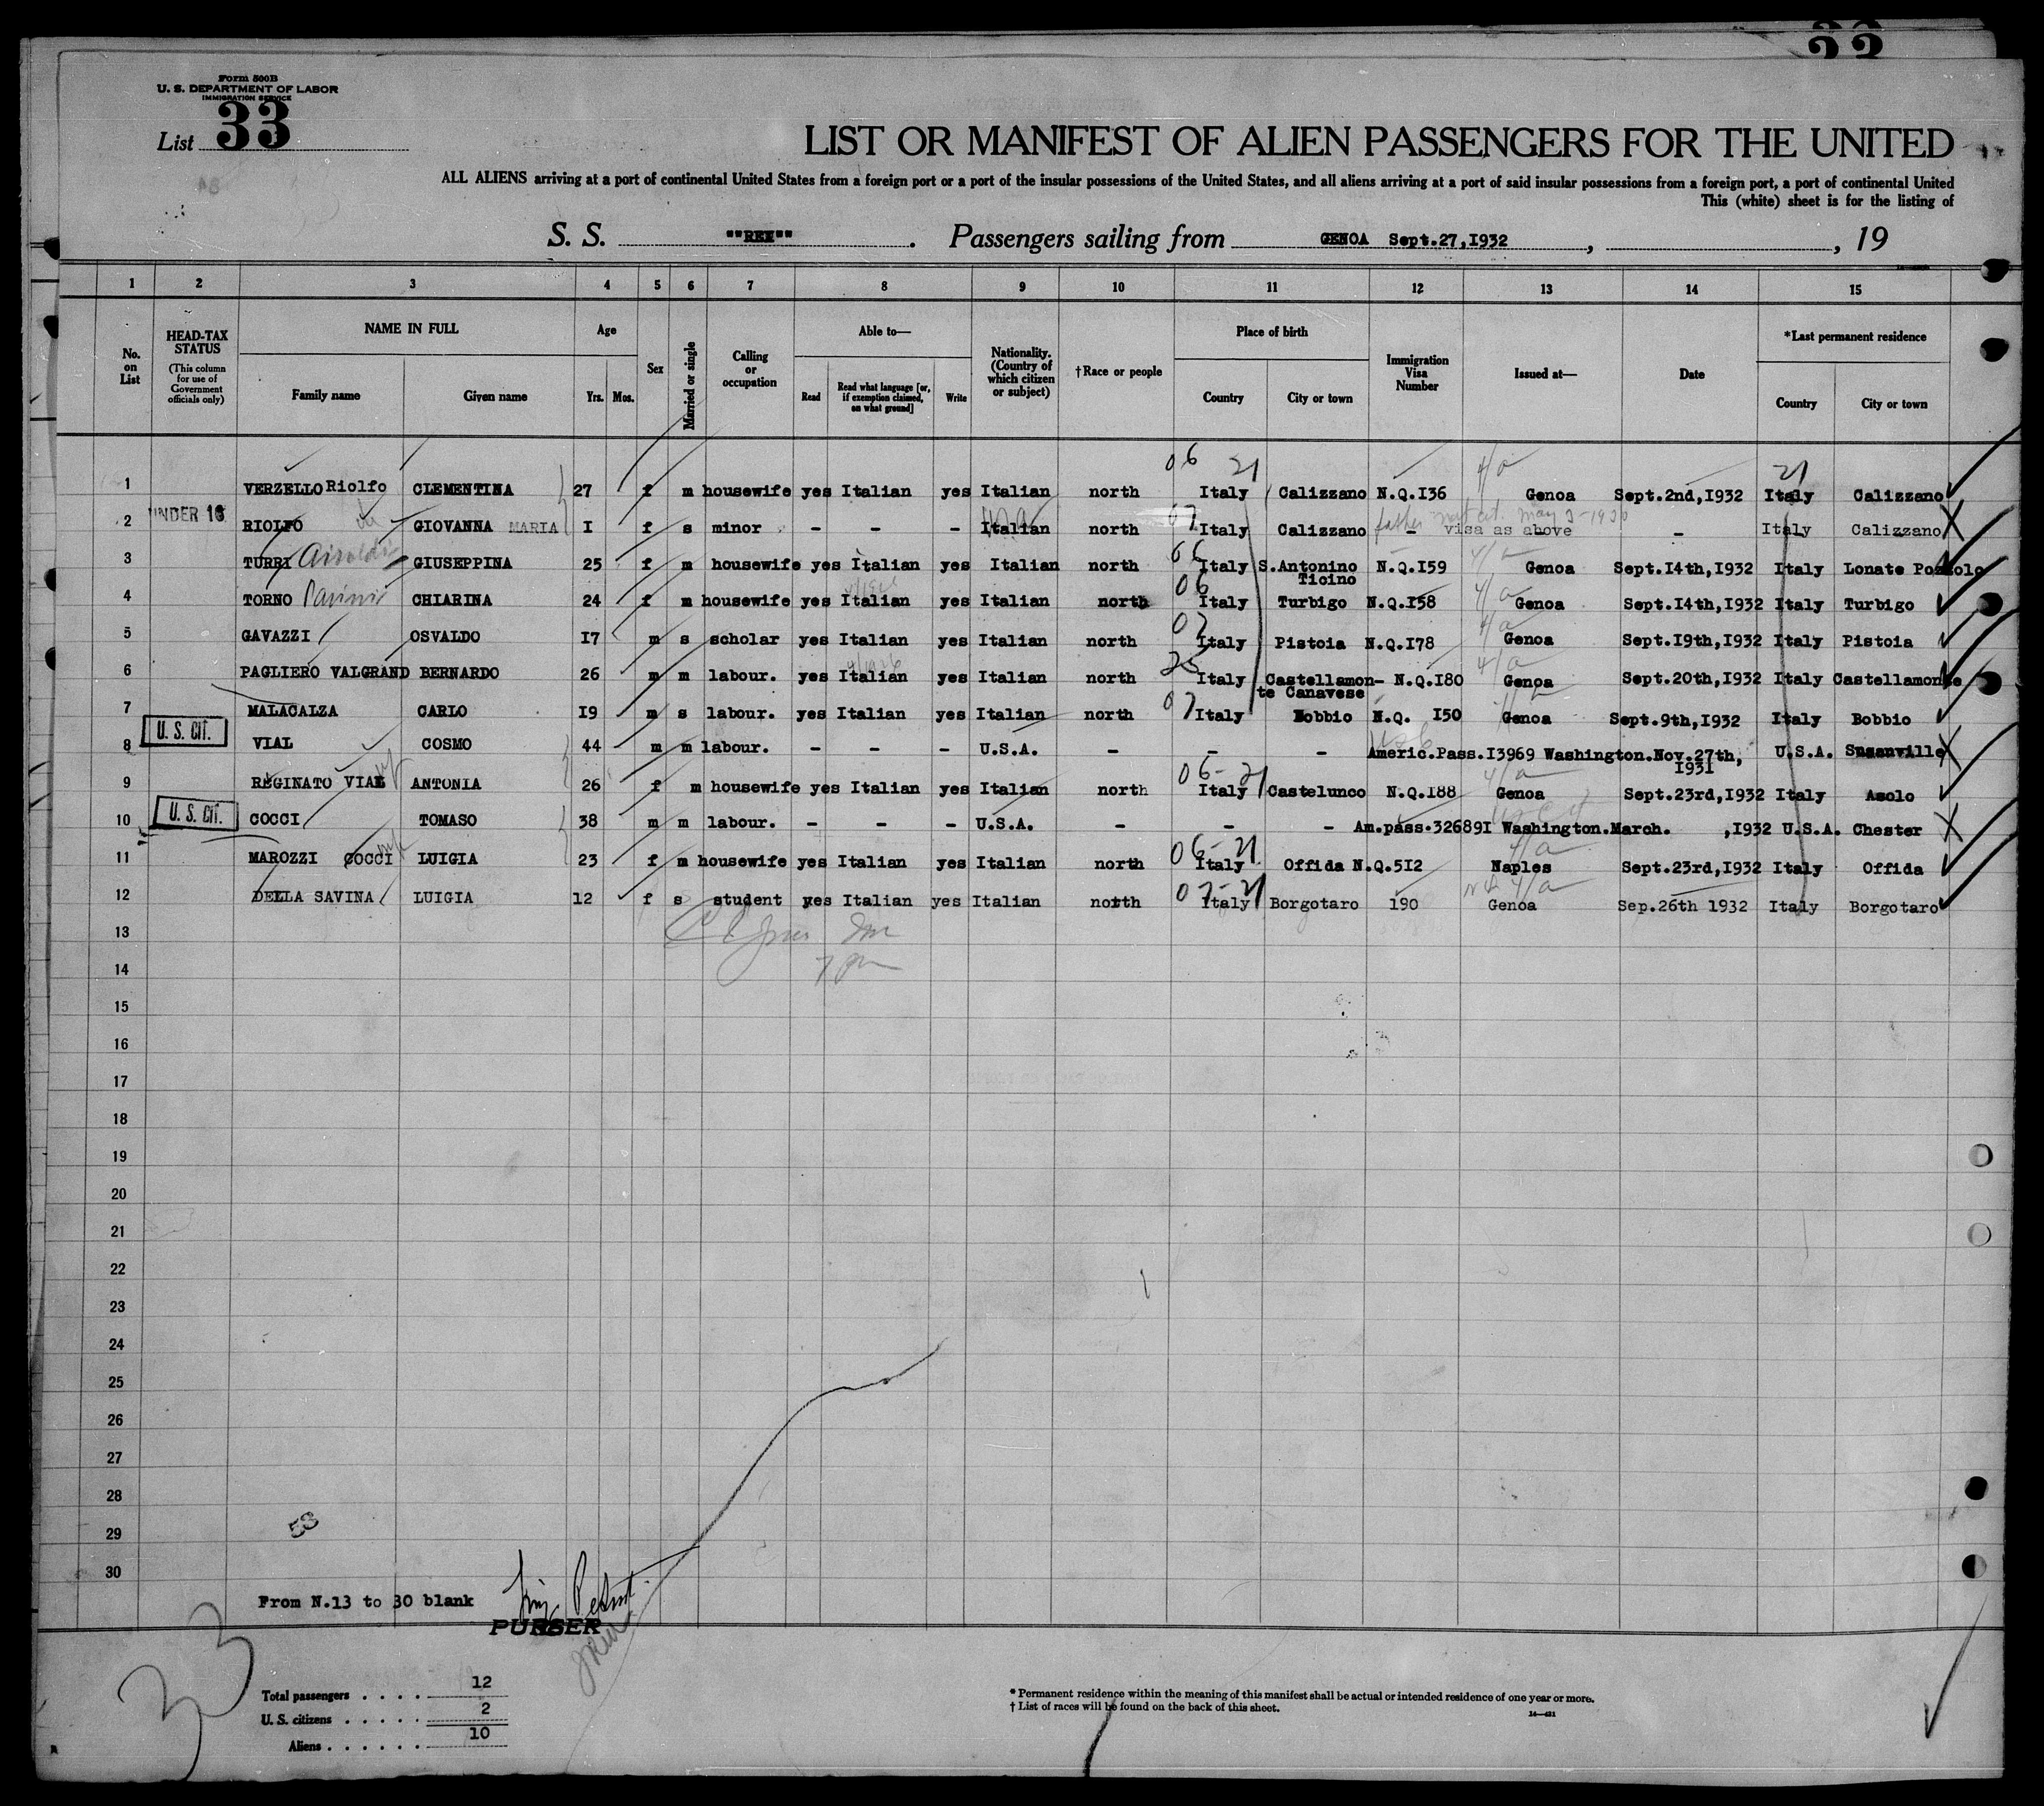 33
Form 500B
U. S. DEPARTMENT OF LABOR
IMMIGRATION SERVICE
List 33
LIST OR MANIFEST OF ALIEN PASSENGERS FOR THE UNITED
ALL ALIENS arriving at a port of continental United States from a foreign port or a port of the insular possessions of the United States, and all aliens arriving at a port of said insular possessions from a foreign port, a port of continental United
This (white) sheet is for the listing of
S. S. ""REX"" . Passengers sailing from GENOA Sept.27,I932 , , 19
1 2 3 4 5 6 7 8 9 10 11 12 13 14 15
No. on List
HEAD-TAX STATUS
(This column for use of Government officials only)
NAME IN FULL
Family name Given name
Age
Yrs. Mos.
Sex
Married or single
Calling or occupation
Able to—
Read
Read what language [or, if exemption claimed, on what ground]
Write
Nationality. (Country of which citizen or subject)
†Race or people
Place of birth
Country City or town
Immigration Visa Number
Issued at—
Date
*Last permanent residence
Country City or town
06 21 4/a 21
1 VERZELLO Riolfo CLEMENTINA 27 f m housewife yes Italian yes Italian north Italy Calizzano N.Q.I36 Genoa Sept.2nd,I932 Italy Calizzano
2 UNDER 16 RIOLFO GIOVANNA MARIA I f s minor - - - Italian north 07 Italy Calizzano father - visa as above - Italy Calizzano X
3 TURRI Airoldi GIUSEPPINA 25 f m housewife yes Italian yes Italian north 06 Italy S.Antonino Ticino N.Q.I59 4/a Genoa Sept.I4th,I932 Italy Lonate Pozzolo
4 TORNO CHIARINA 24 f m housewife yes Italian yes Italian north 06 Italy Turbigo N.Q.I58 4/a Genoa Sept.I4th,I932 Italy Turbigo
5 GAVAZZI OSVALDO I7 m s scholar yes Italian yes Italian north 07 Italy Pistoia N.Q.I78 4/a Genoa Sept.I9th,I932 Italy Pistoia
6 PAGLIERO VALGRAND BERNARDO 26 m m labour. yes Italian yes Italian north 25 Italy Castellamon-te Canavese N.Q.I80 4/a Genoa Sept.20th,I932 Italy Castellamonte
7 MALACALZA CARLO I9 m s labour. yes Italian yes Italian north 07 Italy Bobbio N.Q. I50 Genoa Sept.9th,I932 Italy Bobbio
8 U. S. CIT. VIAL COSMO 44 m m labour. - - - U.S.A. - - - Americ.Pass.I3969 Washington.Nov.27th, I931 U.S.A. Susanville X
9 REGINATO VIAL ANTONIA 26 f m housewife yes Italian yes Italian north 06-21 Italy Castelunco N.Q.I88 4/a Genoa Sept.23rd,I932 Italy Asolo
10 U. S. CIT. COCCI TOMASO 38 m m labour. - - - U.S.A. - - - Am.pass.32689I Washington.March. ,I932 U.S.A. Chester X
11 MAROZZI COCCI LUIGIA 23 f m housewife yes Italian yes Italian north 06-21 Italy Offida N.Q.5I2 4/a Naples Sept.23rd,I932 Italy Offida
12 DELLA SAVINA LUIGIA 12 f s student yes Italian yes Italian north 07-21 Italy Borgotaro 190 4/a Genoa Sep.26th 1932 Italy Borgotaro
13
14 7 pm
15
16
17
18
19
20
21
22
23
24
25
26
27
28
29 53
30
From N.13 to 30 blank
PURSER
33
Total passengers . . . . 12
U. S. citizens . . . . . 2
Aliens . . . . . . 10
* Permanent residence within the meaning of this manifest shall be actual or intended residence of one year or more.
† List of races will be found on the back of this sheet.
14—431